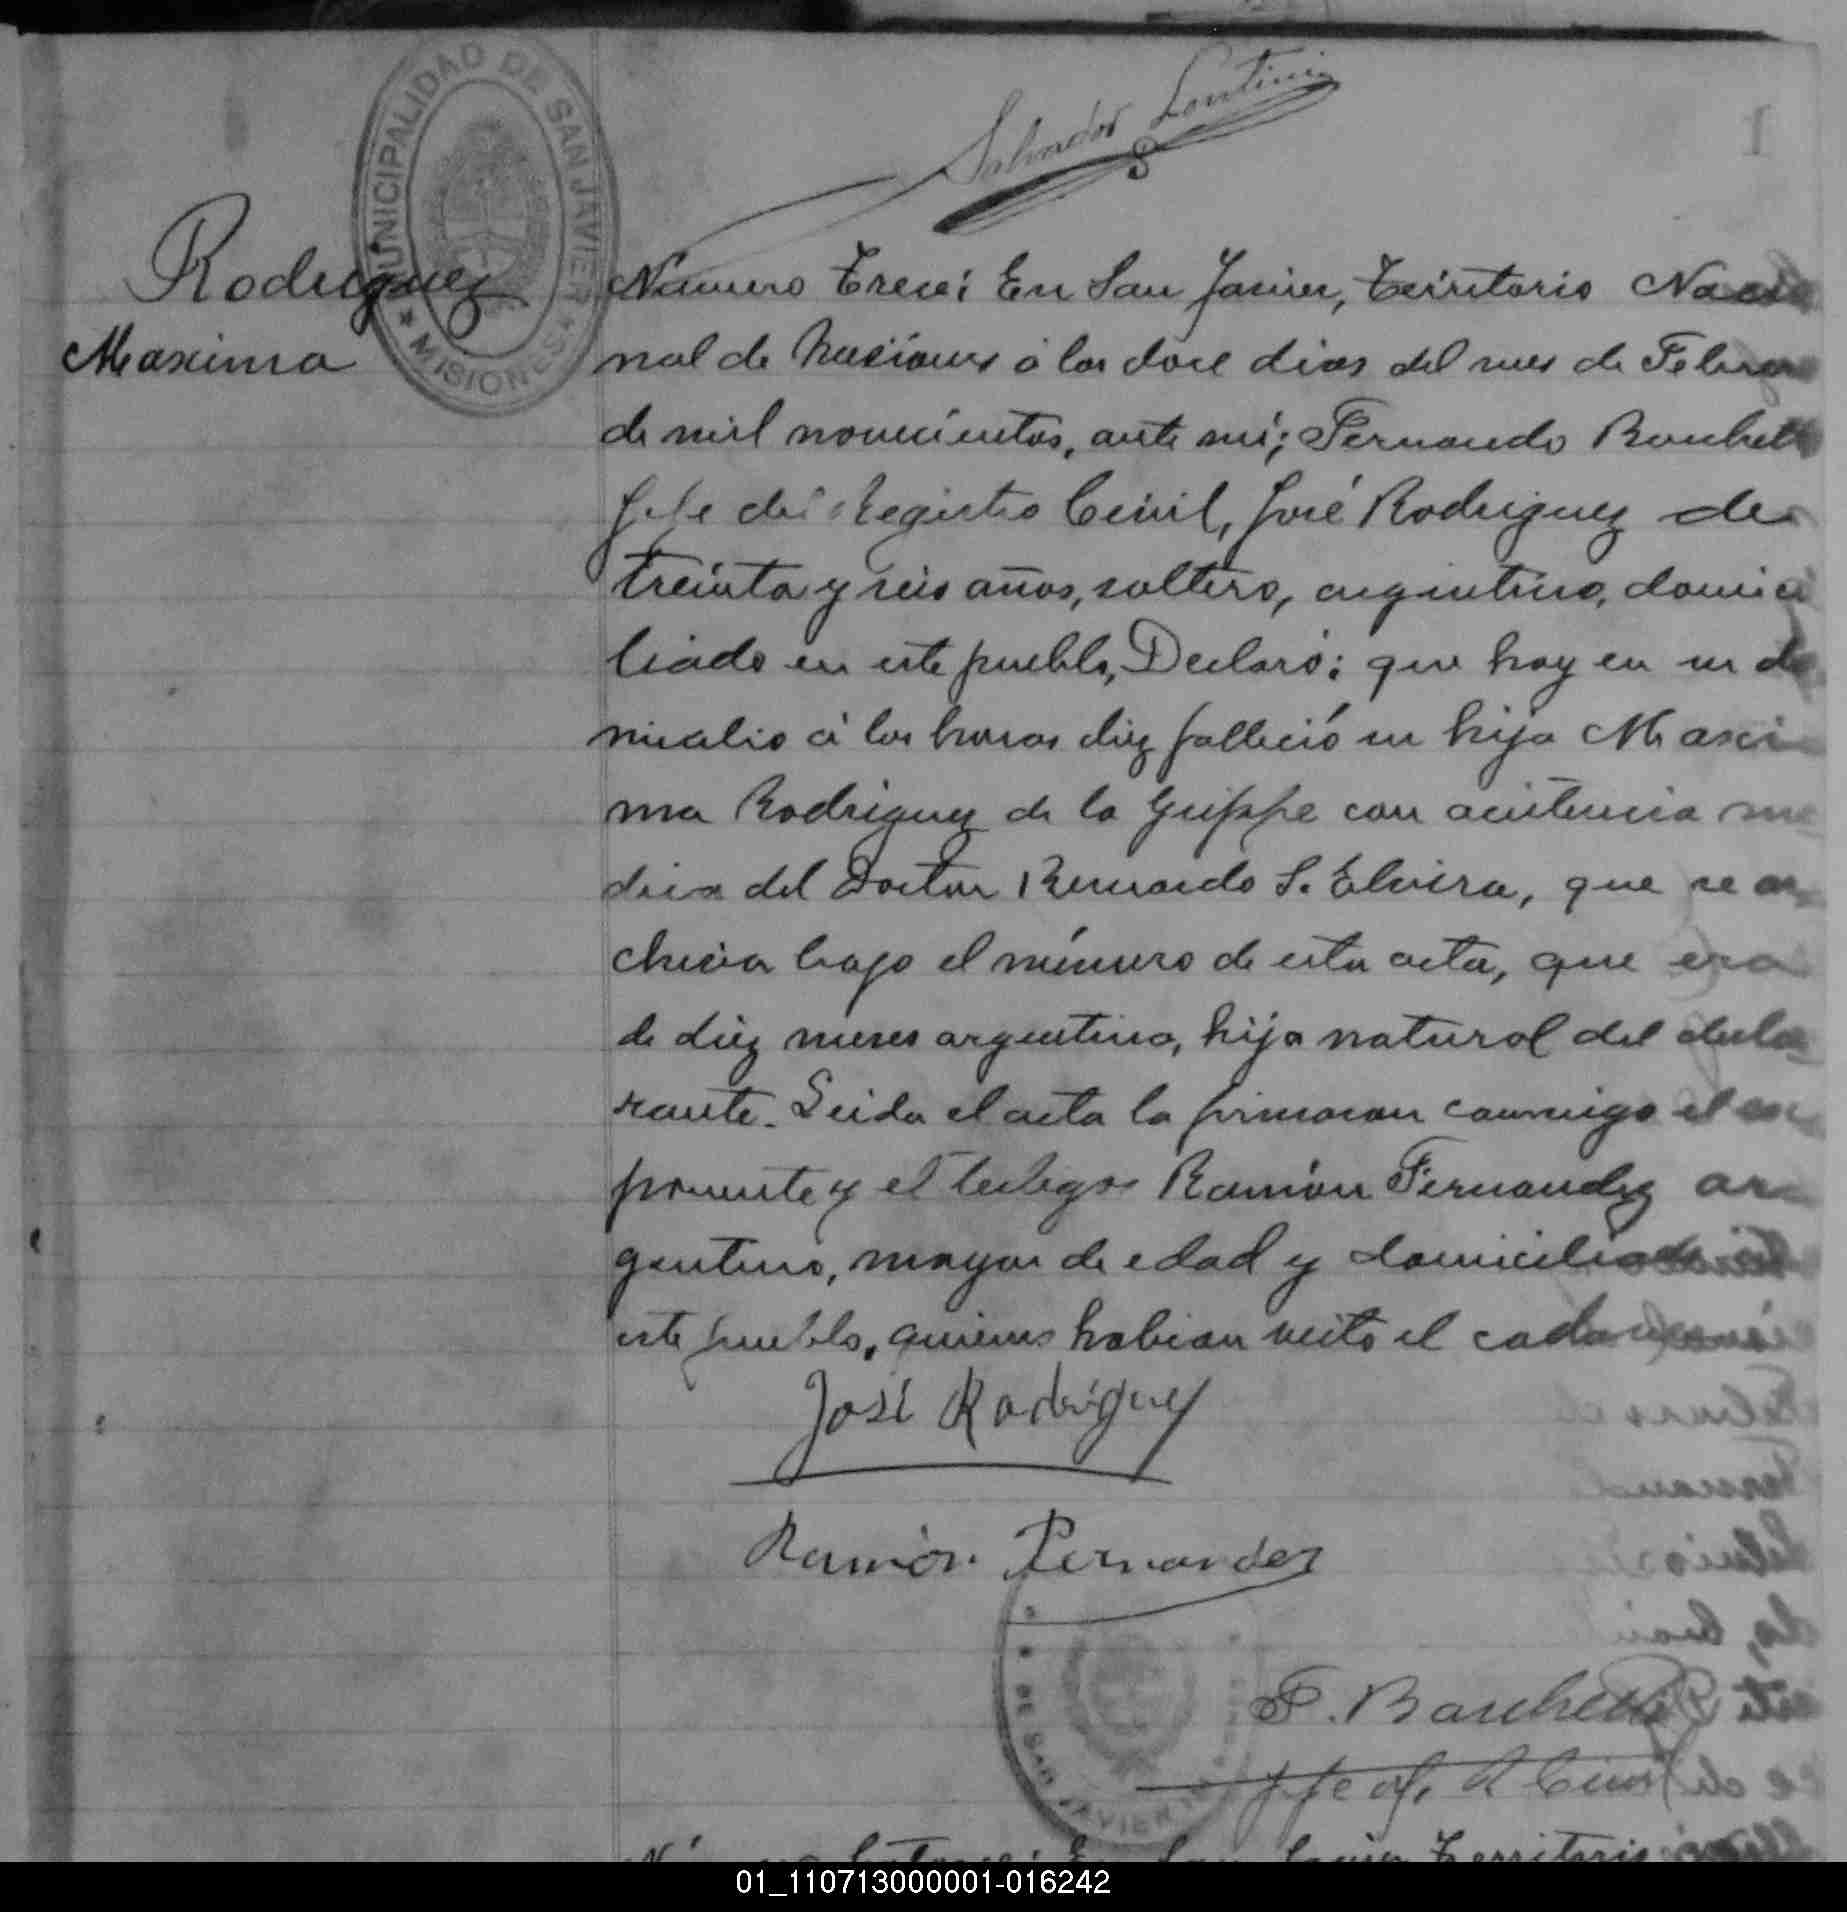 MUNICIPALIDAD DE SAN JAVIER
* MISIONES *
Salvador
1
Rodriguez
Maxima
Número Trece: En San Javier, Territorio Nacio
nal de Misiones á los doce dias del mes de Febrero
de mil novecientos, ante mi; Fernando Barchetti
Jefe del Registro Civil, José Rodriguez de
treinta y seis años, soltero, argentino, domici
liado en este pueblo, Declaró: que hoy en su do
micilio á las horas diez falleció su hija Maxi
ma Rodriguez de la Grippe con acistencia me
dica del Doctor Bernardo S. Elvira, que se ar
chiva bajo el número de esta acta, que era
de diez meses argentina, hija natural del decla
rante. Leida el acta la firmaron conmigo el ex
ponente y el testigos Ramón Fernandez ar
gentino, mayor de edad y domiciliado
este pueblo, quienes habian visto el cadaver
José Rodriguez
Ramón Fernandez
DE SAN JAVIER
F. Barchetti
Jefe del R. Civil
Número Catorce: En San Javier Territorio
01_110713000001-016242